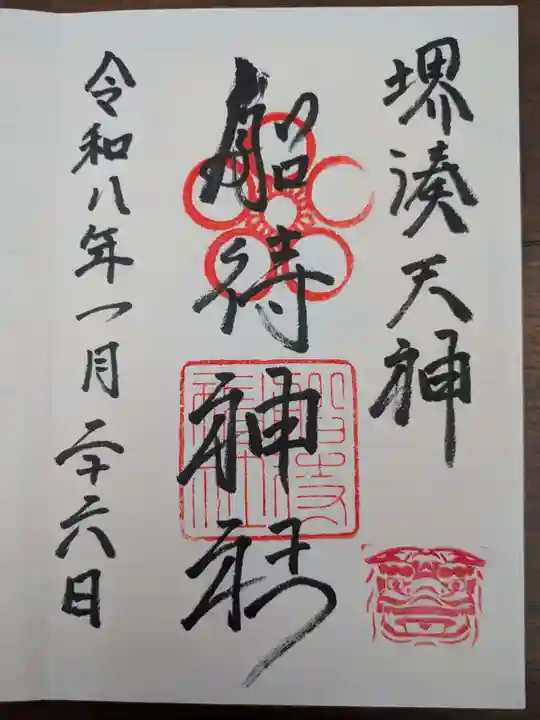 堺湊天神
船待神社
船待神社
令和八年一月二十六日